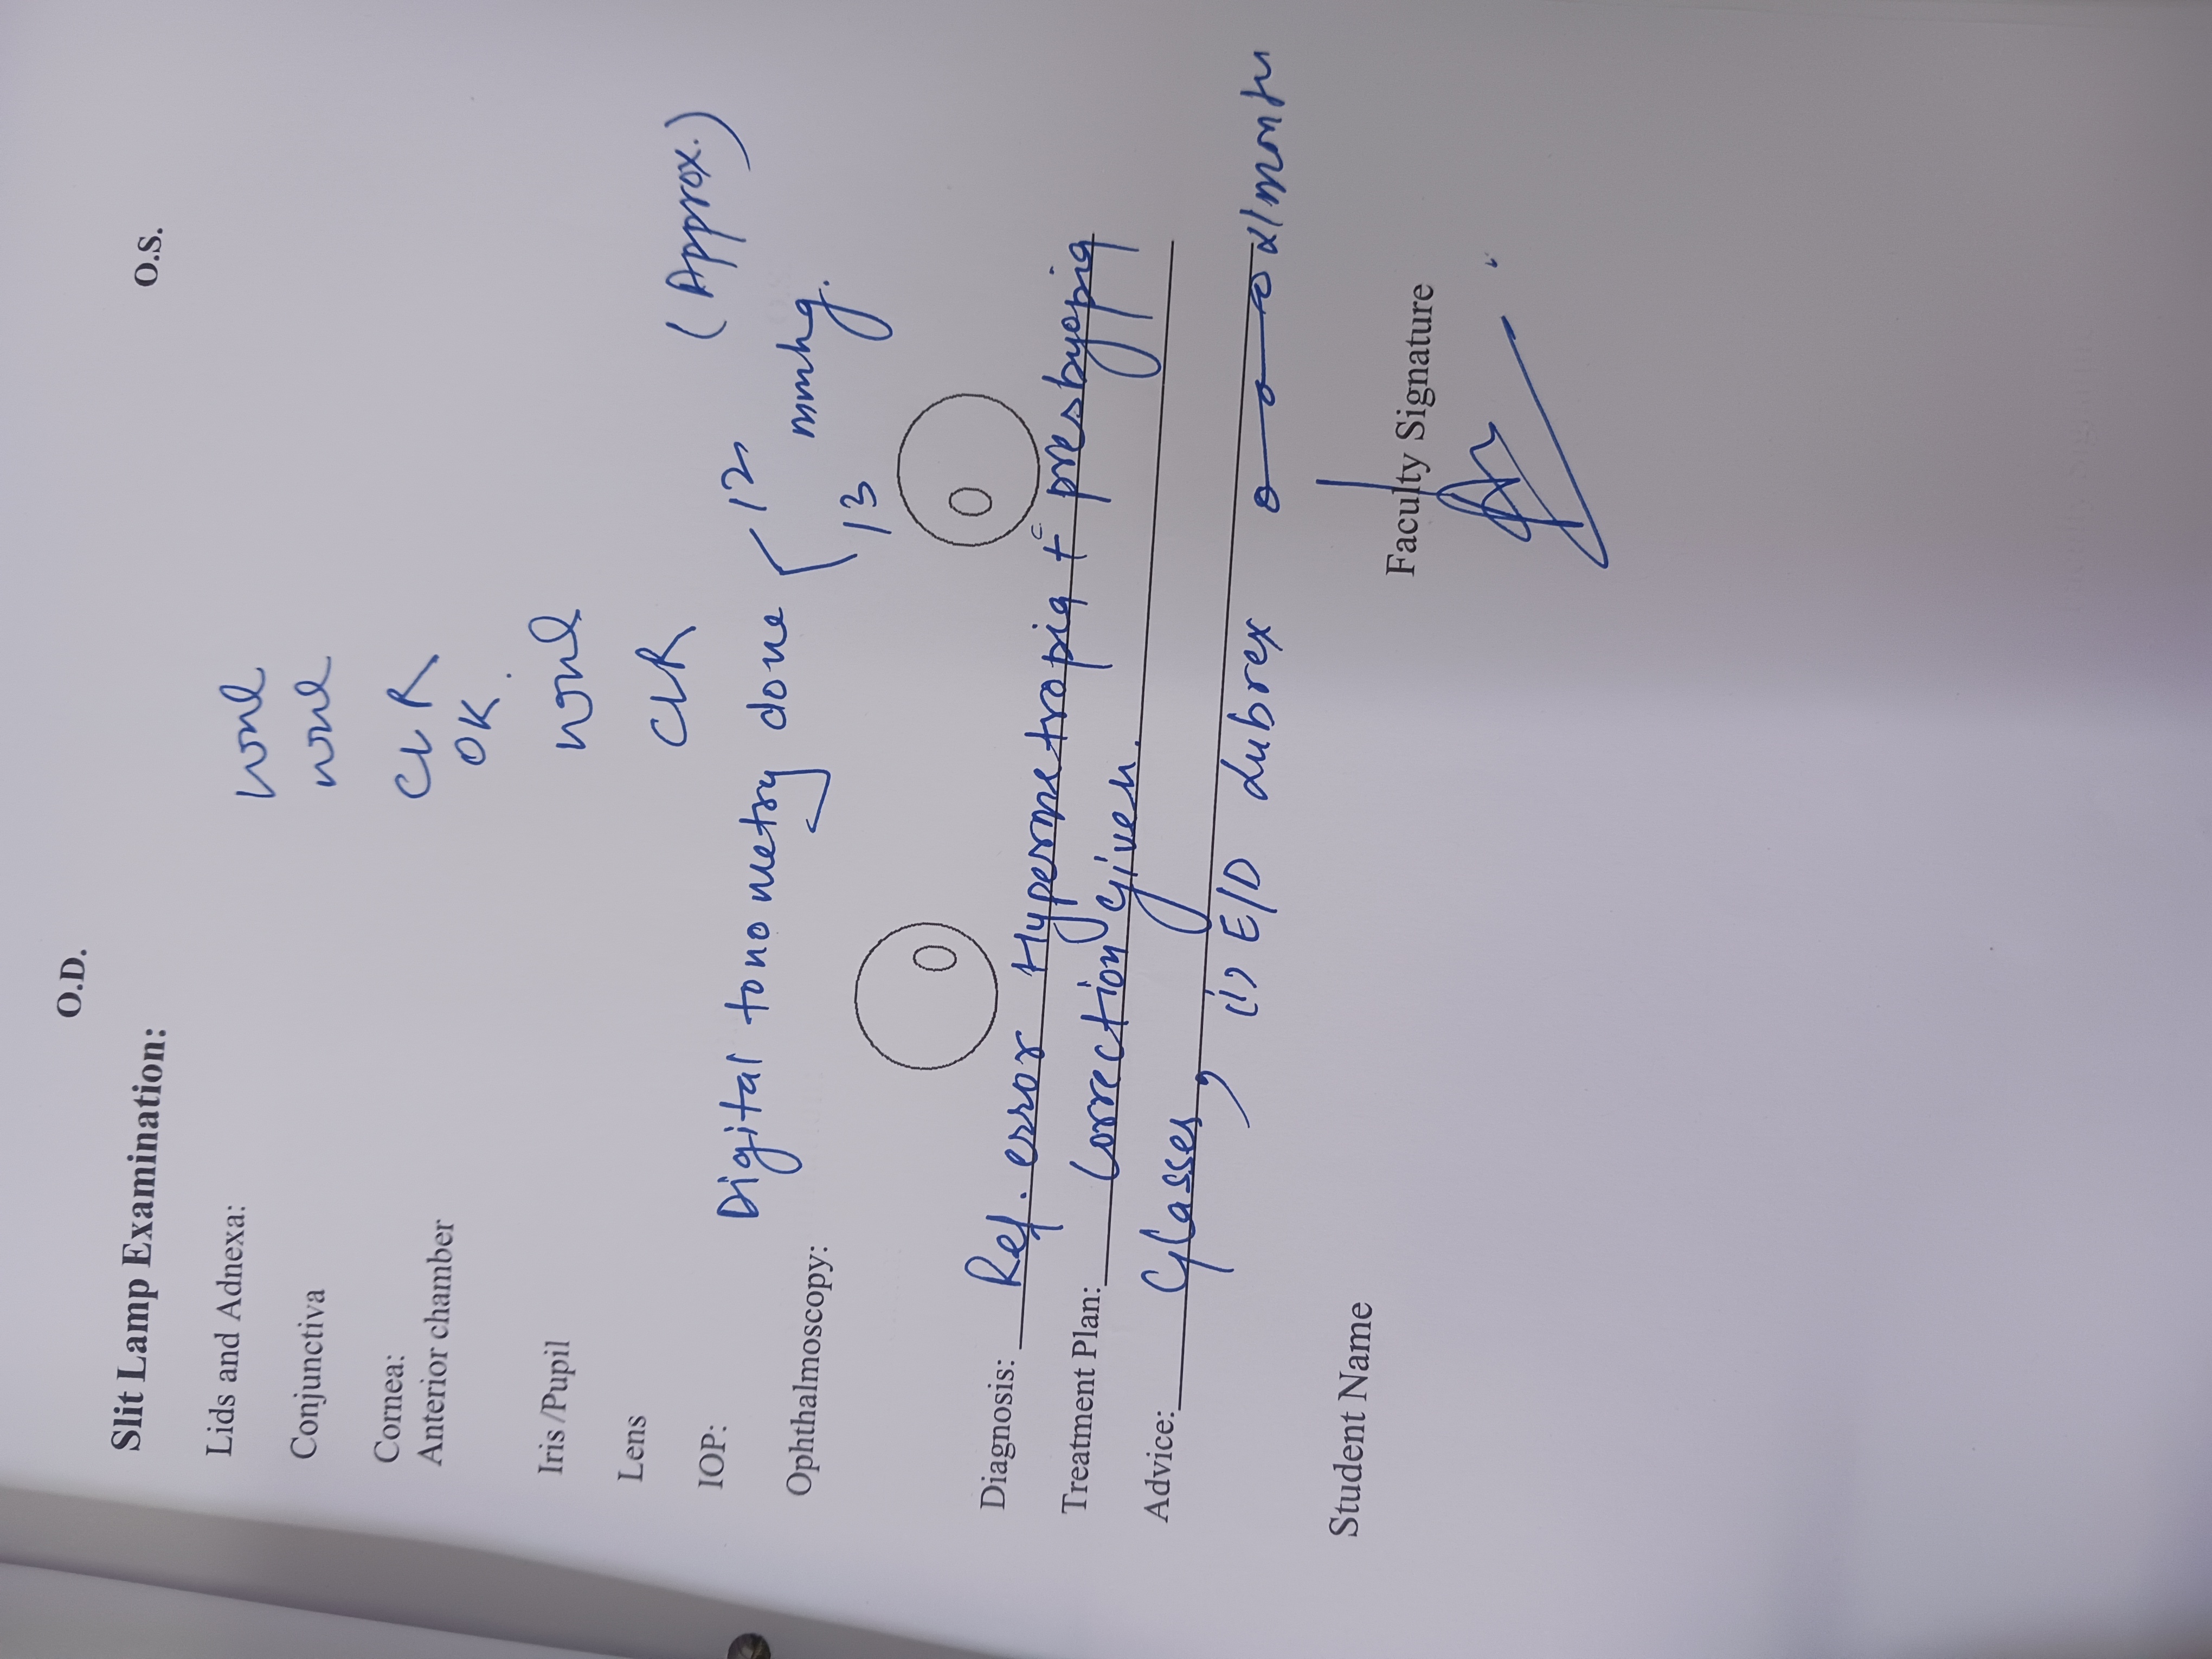 O.D. O.S.
Slit Lamp Examination:
Lids and Adnexa: wnl
Conjunctiva wnl
Cornea: CLR
Anterior chamber OK.
Iris /Pupil wnl
Lens CLR
(Approx.)
IOP: Digital tonometry done 12
mmhg.
13
Ophthalmoscopy:
Diagnosis: Ref. error Hypermetropia c presbyopia
Treatment Plan: Correction given.
Advice: Glasses,
(1) E/D Lubrex x 1 month
Student Name
Faculty Signature